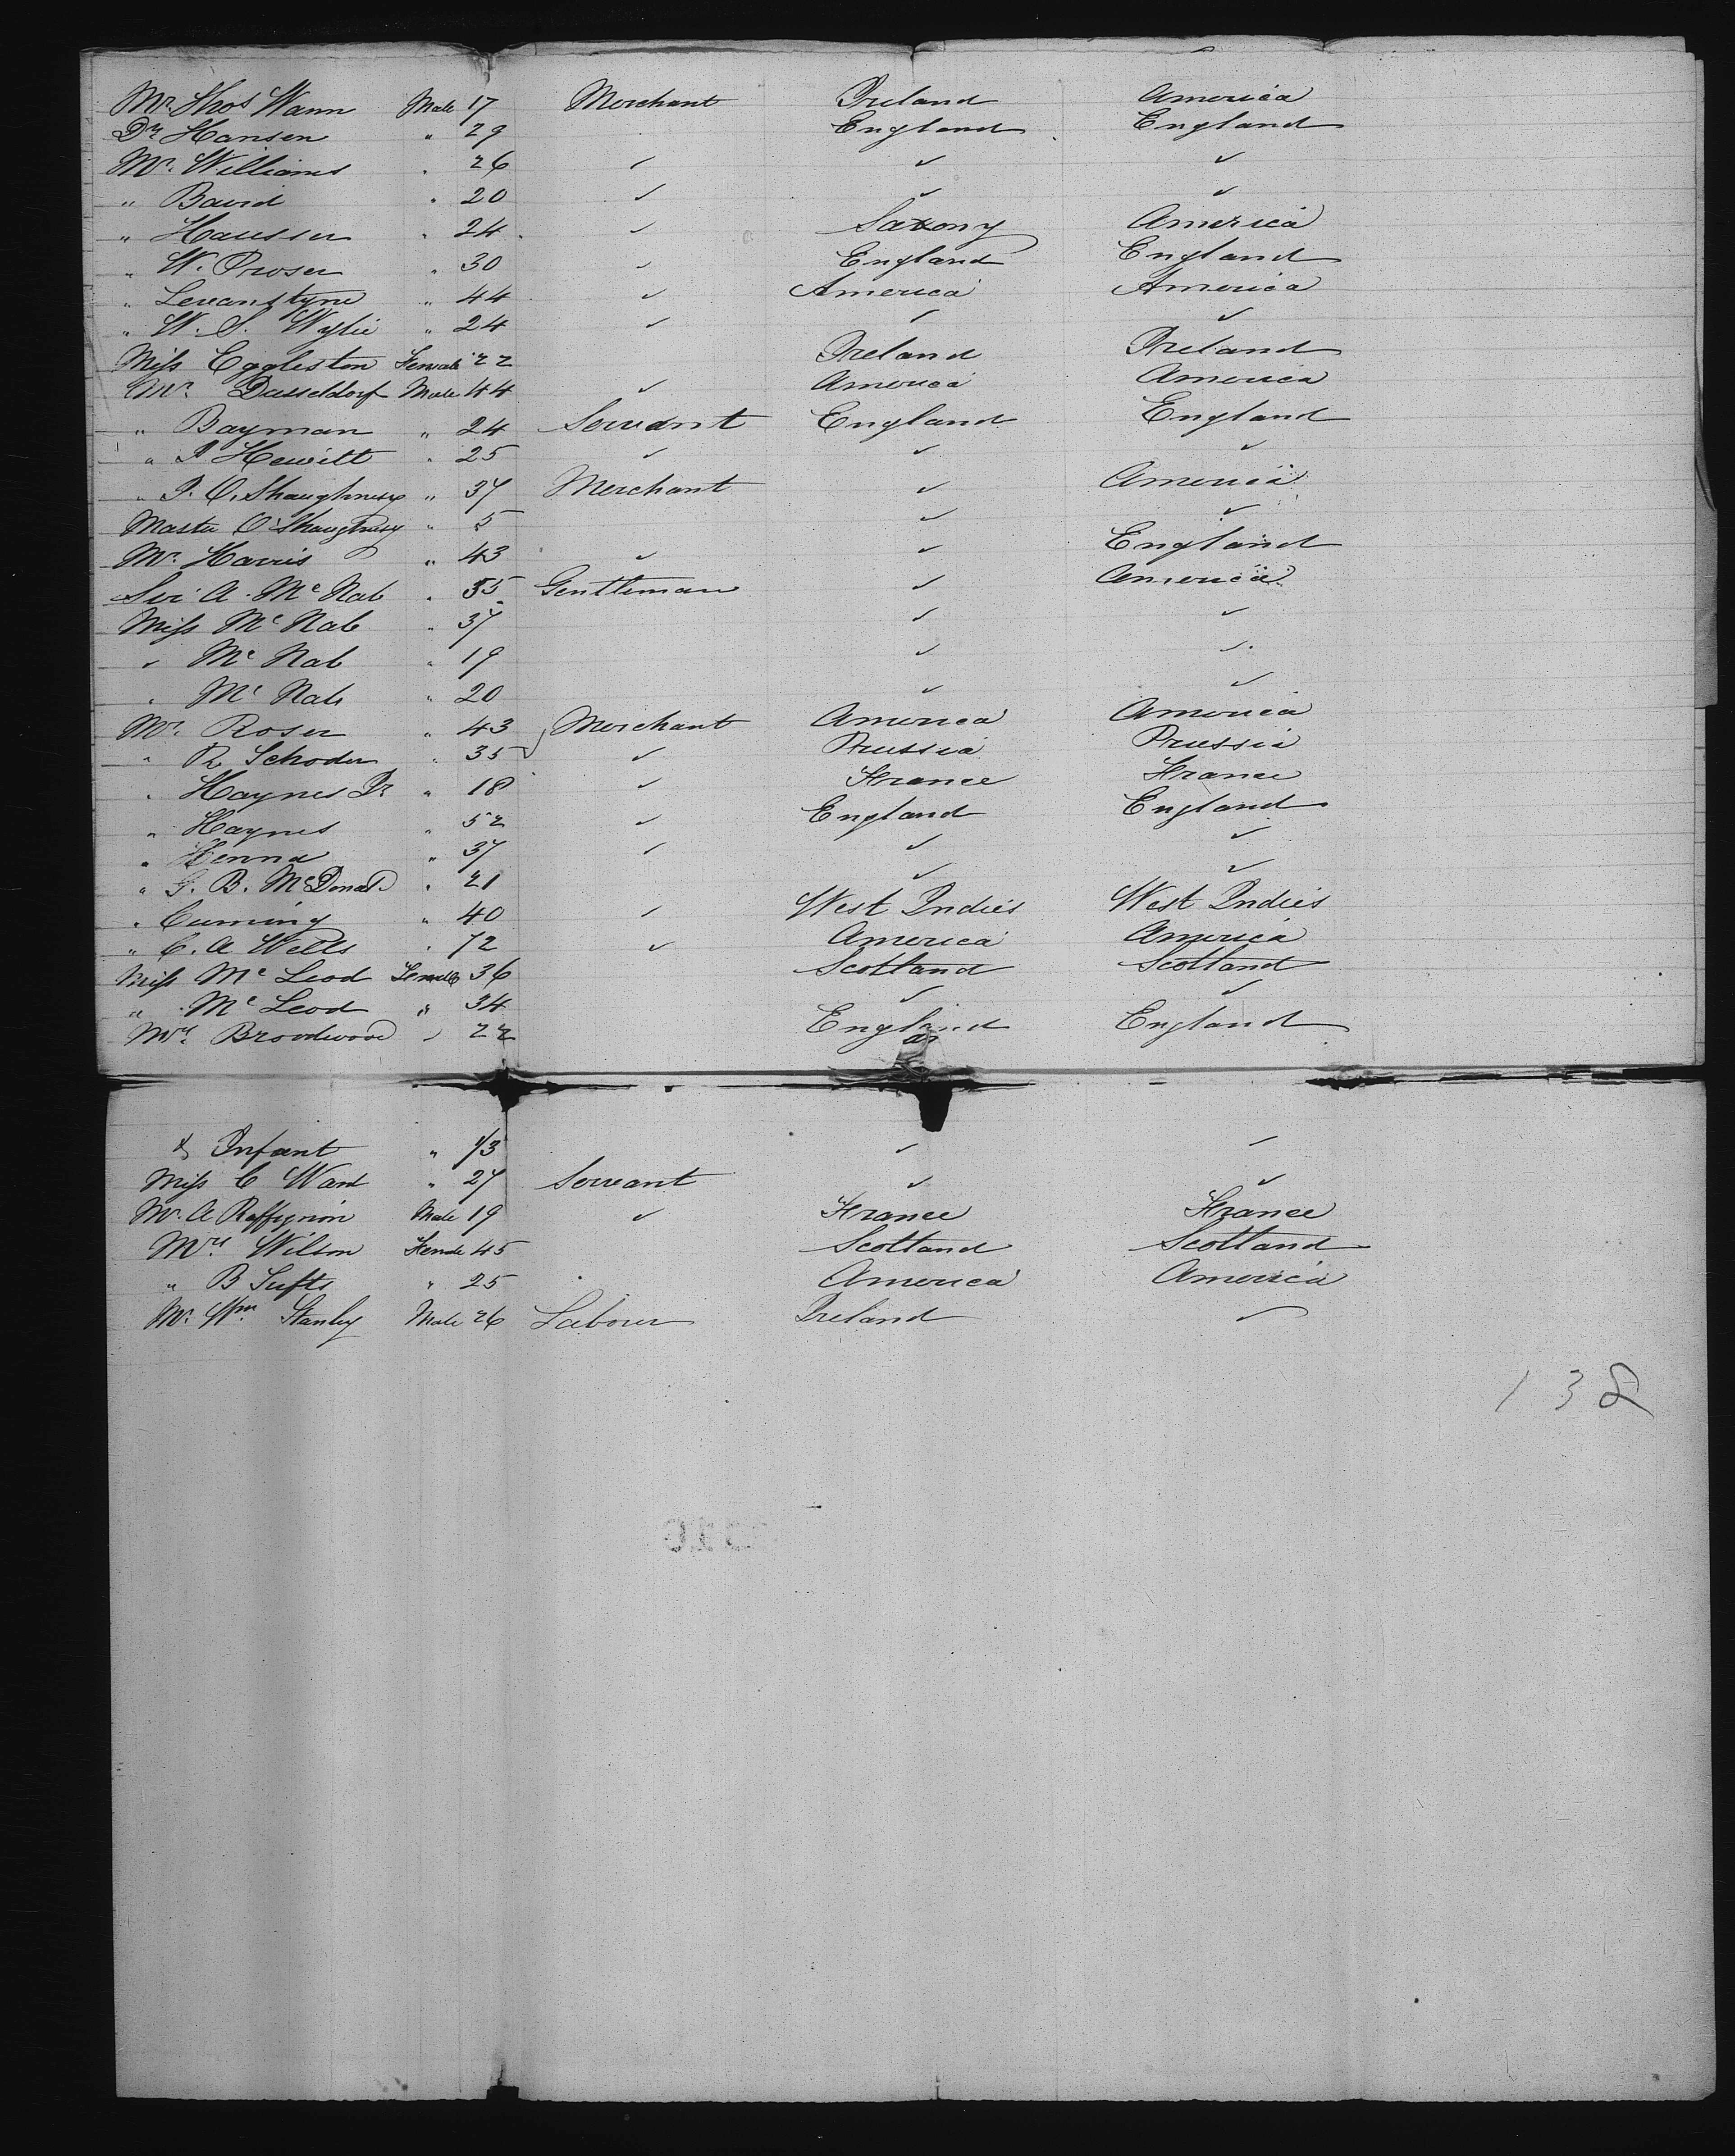 Mr. Thos Wann Male 17 Merchant Ireland America
Dr Hansen " 29 England England
Mr. Williams " 26 ✓ ✓ ✓
" Bavid " 20 ✓ ✓ ✓
" Hausser " 24 ✓ Saxony America
" W. Proser " 30 ✓ England England
" Levanstyne " 44 ✓ America America
" W. S. Wylie " 24 ✓ ✓ ✓
Miss Eggleston Female 22 Ireland Ireland
Mr. Dusseldorf Male 44 ✓ America America
" Bayman " 24 Servant England England
" J Hewitt " 25 ✓ ✓ ✓
" P. O. Shaughnesy " 37 Merchant ✓ America
Master O'Shaughnesy " 5 ✓ ✓
Mr. Harris " 43 ✓ ✓ England
Sir A. Mc Nab " 55 Gentleman ✓ America
Miss Mc Nab " 37 ✓ ✓
" Mc Nab " 19 ✓ ✓
" Mc Nab " 20 ✓ ✓
Mr. Roser " 43 Merchant America America
" R Schoder " 35 ✓ Prussia Prussia
" Haynes Jr " 18 ✓ France France
" Haynes " 52 ✓ England England
" Henna " 37 ✓ ✓ ✓
" G. B. McDonald " 21 ✓ ✓
" Cuming " 40 ✓ West Indies West Indies
" C. A Wells " 72 ✓ America America
Miss Mc Leod Female 36 Scotland Scotland
" Mc Leod " 34 ✓ ✓
Mrs. Broodwood " 22 England England
& Infant " 1/3 ✓ ✓
Miss C Ward " 27 Servant ✓ ✓
Mr. A Raffignon Male 19 ✓ France France
Mrs. Wilson Female 45 Scotland Scotland
" B Tufts " 25 America America
Mr. Wm. Stanley Male 26 Labourer Ireland ✓
138